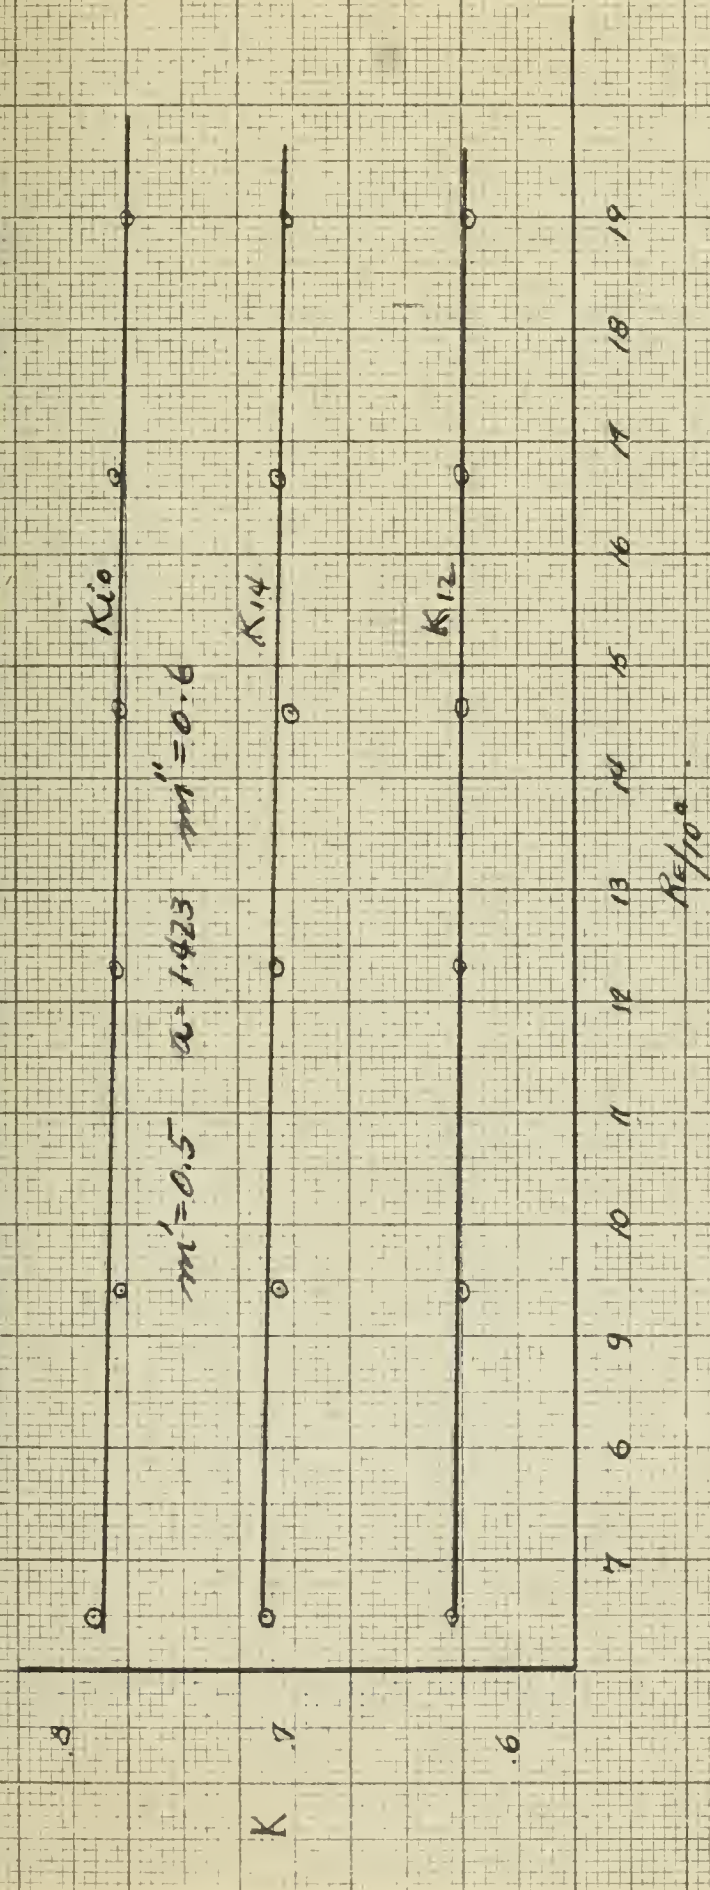 K
.8
.7
.6
K10
K14
K12
m'=0.5 a=1.423 m''=0.6
7 6 9 10 11 12 13 14 15 16 17 18 19
RE/10